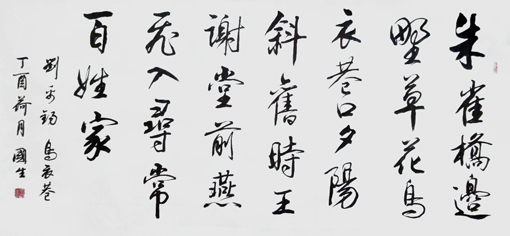 朱雀橋邊
野草花烏
衣巷口夕陽
斜舊時王
謝堂前燕
飛入尋常
百姓家
劉禹錫 烏衣巷
丁酉荷月 國生